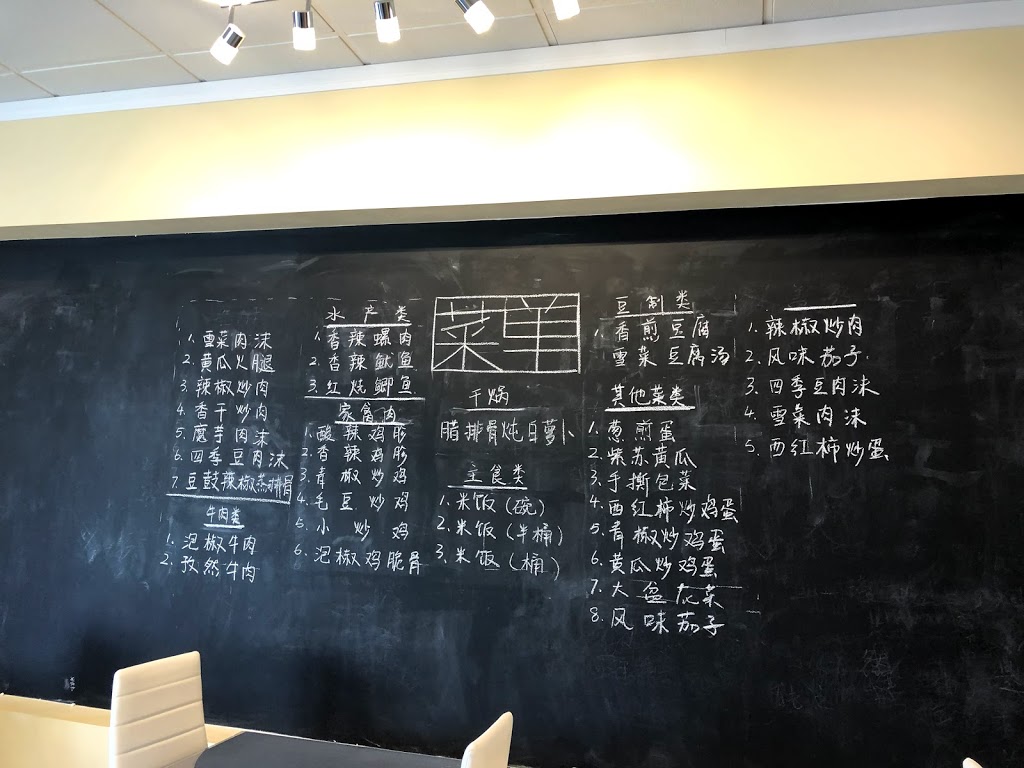 1. 雪菜肉沫
2. 黄瓜火腿
3. 辣椒炒肉
4. 香干炒肉
5. 魔芋肉沫
6. 四季豆肉沫
7. 豆鼓辣椒蒸排骨
牛肉类
1. 泡椒牛肉
2. 孜然牛肉
水产类
1. 香辣螺肉
2. 香辣鱿鱼
3. 红烧鲫鱼
家禽肉
1. 酸辣鸡肠
2. 香辣鸡肠
3. 青椒炒鸡
4. 毛豆炒鸡
5. 小炒鸡
6. 泡椒鸡脆骨
菜单
干煱
腊排骨炖白萝卜
主食类
1. 米饭(碗)
2. 米饭(半桶)
3. 米饭(桶)
豆制类
1. 香煎豆腐
雪菜豆腐汤
其他菜类
1. 葱煎蛋
2. 紫苏黄瓜
3. 手撕包菜
4. 西红柿炒鸡蛋
5. 青椒炒鸡蛋
6. 黄瓜炒鸡蛋
7. 大盆花菜
8. 风味茄子
1. 辣椒炒肉
2. 风味茄子
3. 四季豆肉沫
4. 雪菜肉沫
5. 西红柿炒蛋